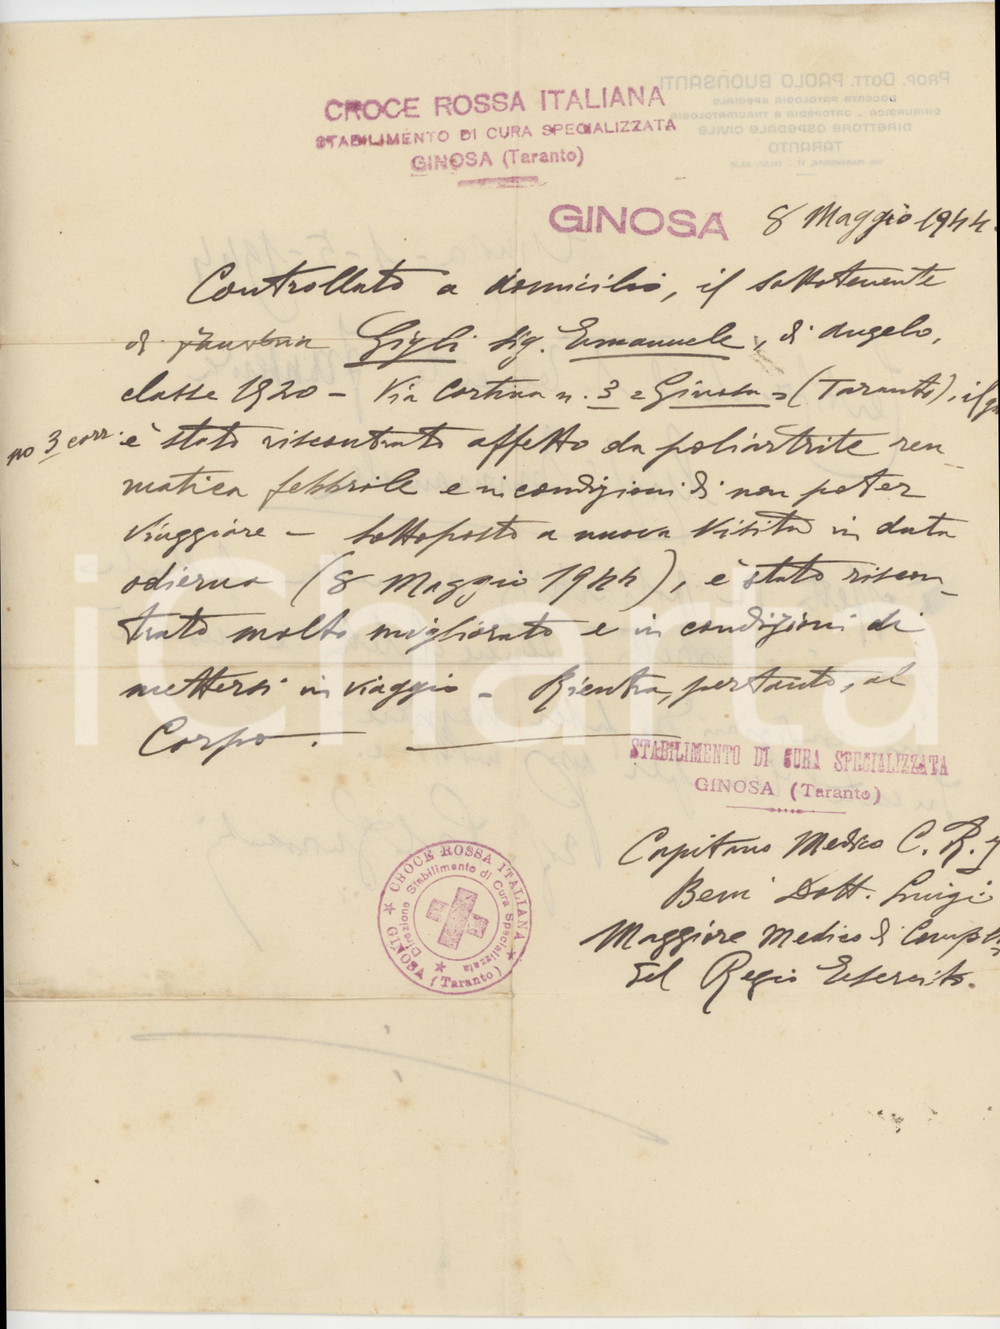 CROCE ROSSA ITALIANA
STABILIMENTO DI CURA SPECIALIZZATA
GINOSA (Taranto)
PROF. DOTT. PAOLO BUONSANTI
DOCENTE PATOLOGIA SPECIALE
CHIRURGICA - ORTOPEDIA E TRAUMATOLOGIA
DIRETTORE OSPEDALE CIVILE
TARANTO
GINOSA 8 Maggio 1944.
Controllato a domicilio, il sottotenente
di Gigli Sig. Emanuele, di Angelo,
classe 1920 - Via Cortina n. 3 = Ginosa = (Taranto), il gior
no 3 corr. è stato riscontrato affetto da poliartrite reu
matica febbrile e in condizioni di non poter
viaggiare - Sottoposto a nuova visita in data
odierna (8 Maggio 1944), è stato riscon-
trato molto migliorato e in condizioni di
mettersi in viaggio - Rientra, pertanto, al
Corpo.
STABILIMENTO DI CURA SPECIALIZZATA
GINOSA (Taranto)
Capitano Medico C. R. I
Beni Dott. Luigi
Maggiore Medico di
del Regio Esercito.
CROCE ROSSA ITALIANA
Direzione Stabilimento di Cura Specializzata
GINOSA (Taranto)
iCharta